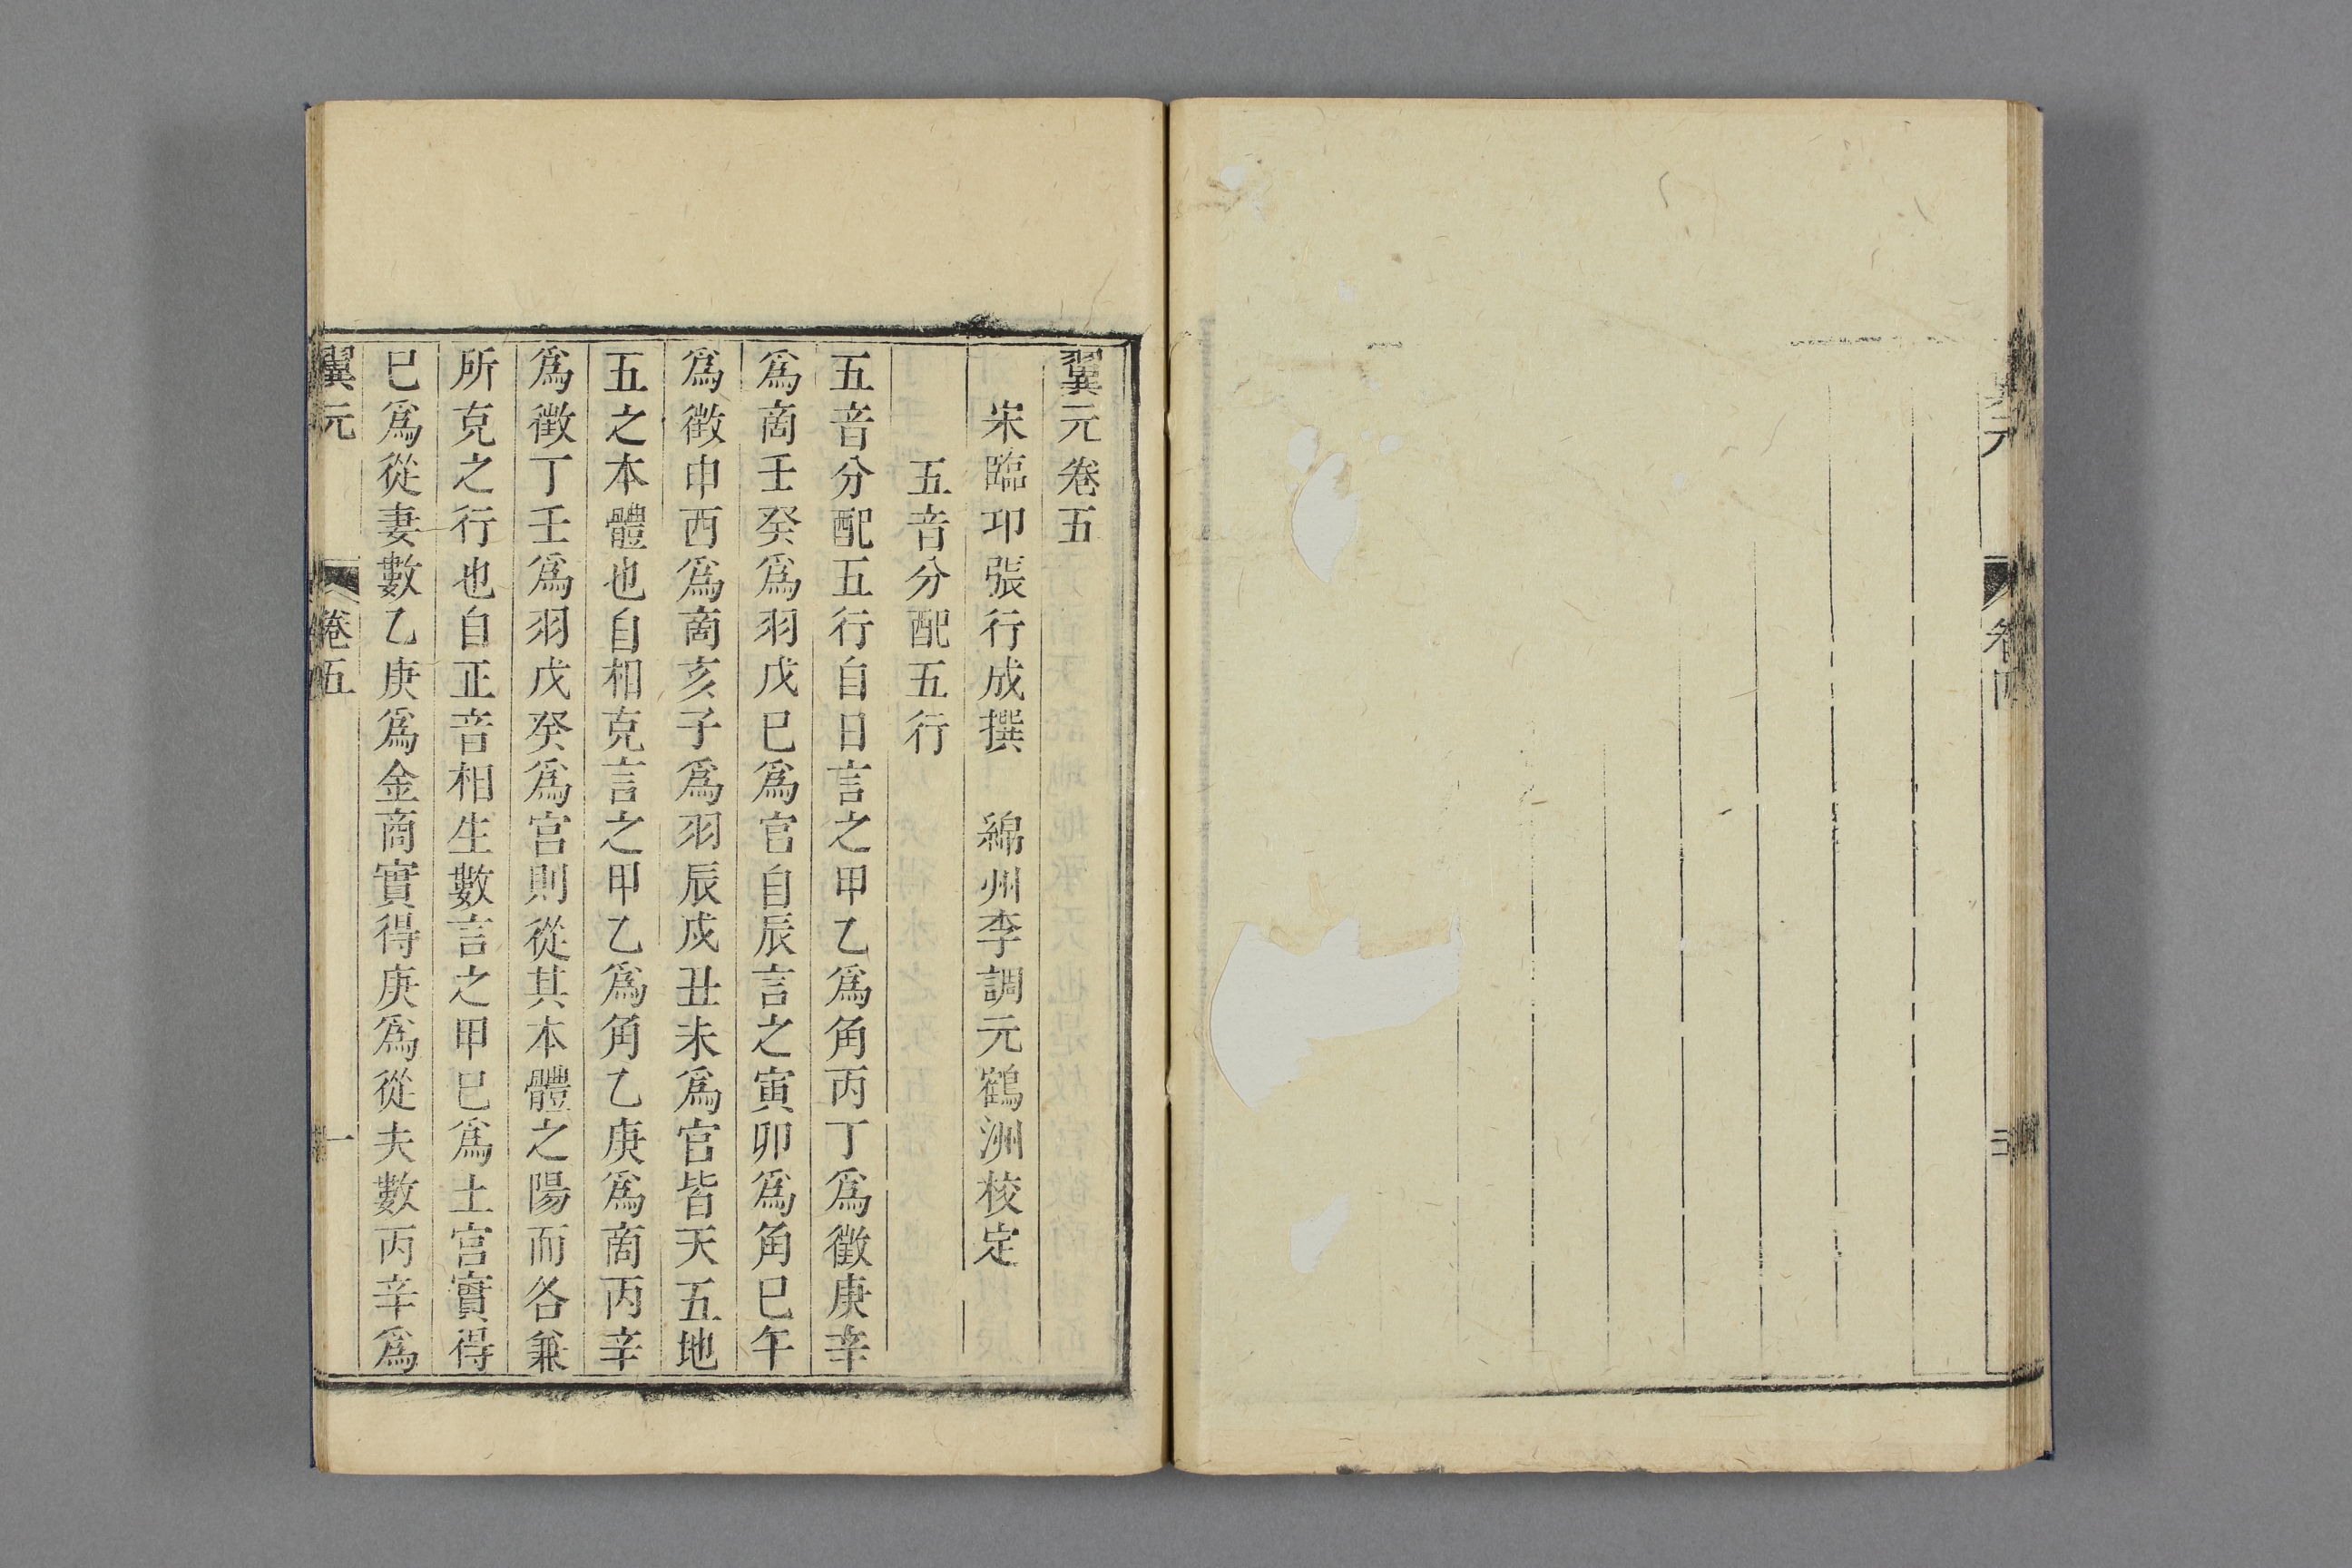 翼元
卷四
翼元卷五
宋臨邛張行成撰　綿州李調元鶴洲校定
五音分配五行
五音分配五行自日言之甲乙爲角丙丁爲徵庚辛
爲商壬癸爲羽戊巳爲宫自辰言之寅卯爲角巳午
爲徵申酉爲商亥子爲羽辰戍丑未爲宫皆天五地
五之本體也自相克言之甲乙爲角乙庚爲商丙辛
爲徵丁壬爲羽戊癸爲宫則從其本體之陽而各兼
所克之行也自正音相生數言之甲巳爲土宫實得
巳爲從妻數乙庚爲金商實得庚爲從夫數丙辛爲
翼元
卷五
一